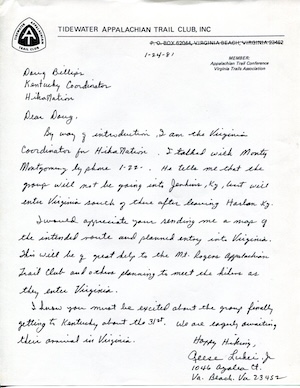 TIDEWATER APPALACHIAN TRAIL CLUB, INC
P. O. BOX 62044, VIRGINIA BEACH, VIRGINIA 23462
MEMBER:
Appalachian Trail Conference
Virginia Trails Association
1-24-81
Doug Billips
Kentucky Coordinator
HikaNation
Dear Doug,
By way of introduction, I am the Virginia
Coordinator for HikaNation. I talked with Monty
Montgomery by phone 1-22-. He tells me that the
group will not be going into Jenkins, Ky, but will
enter Virginia south of there after leaving Harlan Ky.
I would appreciate your sending me a map of
the intended route and planned entry into Virginia.
This will be of great help to the Mt. Rogers Appalachian
Trail Club and others planning to meet the hikers as
they enter Virginia.
I know you must be excited about the group finally
getting to Kentucky about the 31st. We are eagerly awaiting
their arrival in Virginia.
Happy Hiking,
Reese Lukei, Jr
1046 Azalea Ct.
Va. Beach, Va 23452